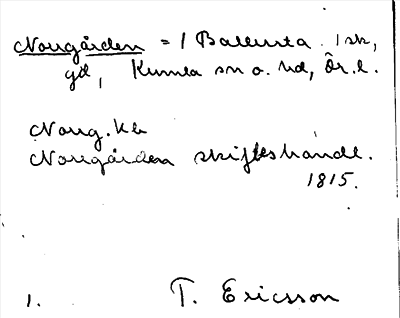 Norrgården = 1 Ballsta 1 sk,
gd, Kumla sn o. hd, Ör. l.
Norrg. kb
Norrgården skifteshandl.
1815.
1. T. Ericsson